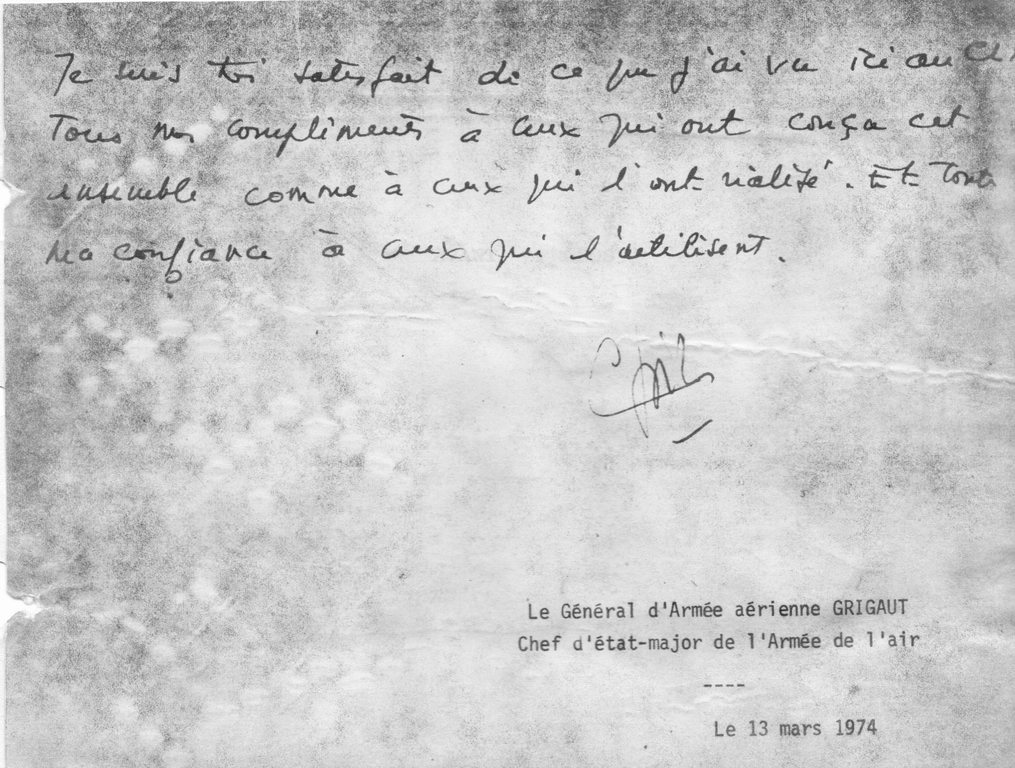 Je suis très satisfait de ce que j'ai vu ici au
Tous mes compliments à ceux qui ont conçu cet
ensemble comme à ceux qui l'ont réalisé. Et toute
ma confiance à ceux qui l'utilisent.
Le Général d'Armée aérienne GRIGAUT
Chef d'état-major de l'Armée de l'air
----
Le 13 mars 1974